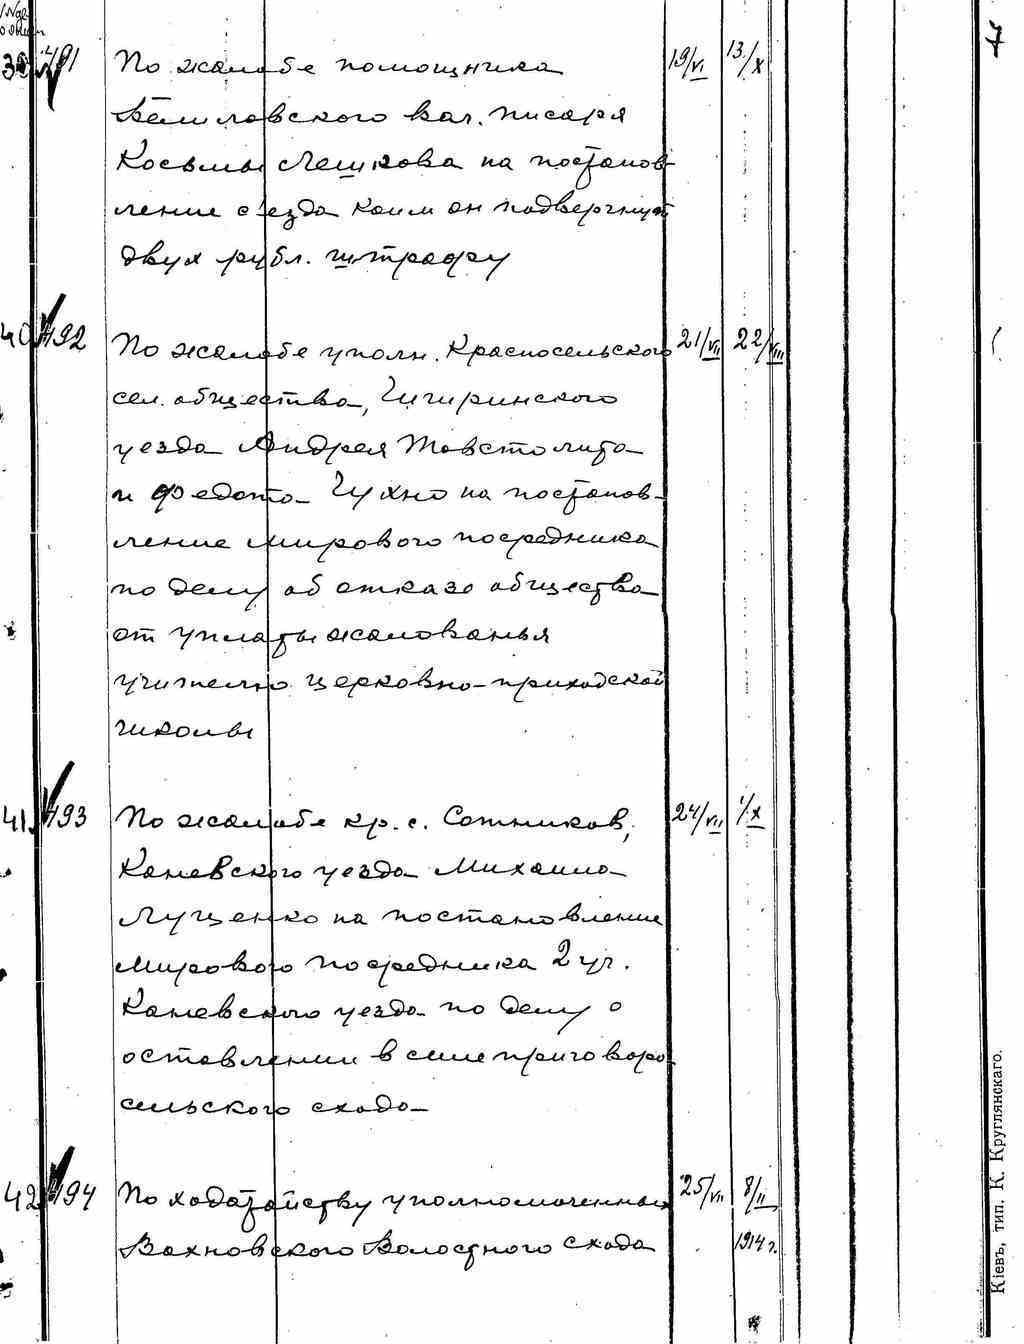 7
491 По жалобе помощника 19/VI 13/X
вол. писаря
Косьмы Лешкова на постанов-
ление с'езда коим он подвергнут
двух рубл. штрафу
40. 492 По жалобе уполн. Красносельского 21/VII 22/VIII
сел. общества, Чигиринского
уезда Андрея Товстолита
и Федота Чухно на постанов-
ление мирового посредника
по делу об отказе общества
от уплаты жалованья
учителю церковно-приходской
школы
41. 493 По жалобе кр. с. Сотников, 24/VII 1/X
Каневского уезда Михаила
Луценко на постановление
Мирового посредника 2 уч.
Каневского уезда по делу о
оставлении в силе приговора
сельского схода
42. 494 По ходатайству уполномоченных 25/VII 8/II
Вахновского Волостного схода 1914 г.
Кіевъ, тип. К. Круглянскаго.